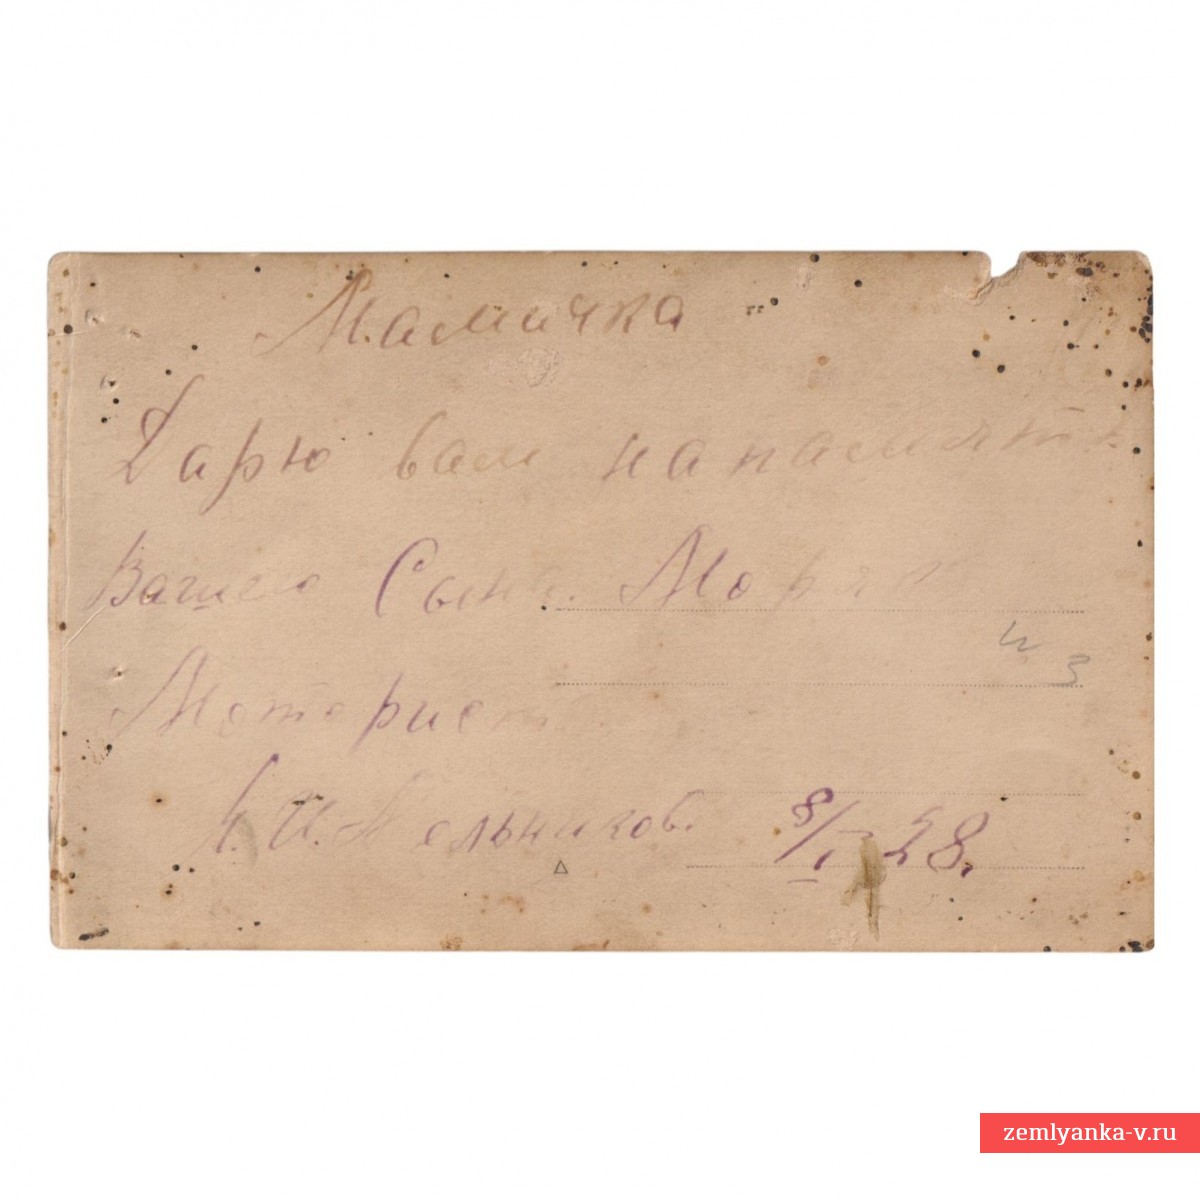 Мамичка
Дарю вам на память
Вашего Сына. Моряк
Моторист
И. Мельников. 8/I 28.
и 3
zemlyanka-v.ru